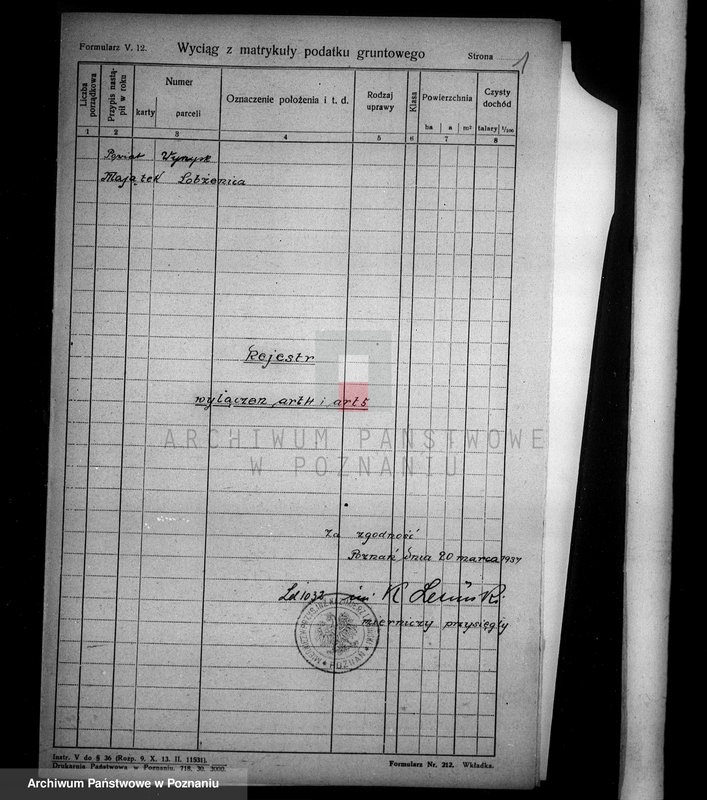 Formularz V. 12.
Wyciąg z matrykuły podatku gruntowego
Strona 1
Liczba porządkowa
Przypis nastąpił w roku
Numer
karty
parceli
Oznaczenie położenia i t. d.
Rodzaj uprawy
Klasa
Powierzchnia
ha a m²
Czysty dochód
talary 1/100
1 2 3 4 5 6 7 8
Powiat Wyrysk
Majątek Łobżenica
Rejestr
wyłączeń art 4 i art 5
ARCHIWUM PAŃSTWOWE
W POZNANIU
Za zgodność
Poznań dnia 20 marca 1937
Ld 1032
mierniczy przysięgły
POZNAŃ
Instr. V do § 36 (Rozp. 9. X. 13. II. 11531).
Drukarnia Państwowa w Poznaniu. 718. 30. 3000.
Formularz Nr. 212. Wkładka.
Archiwum Państwowe w Poznaniu